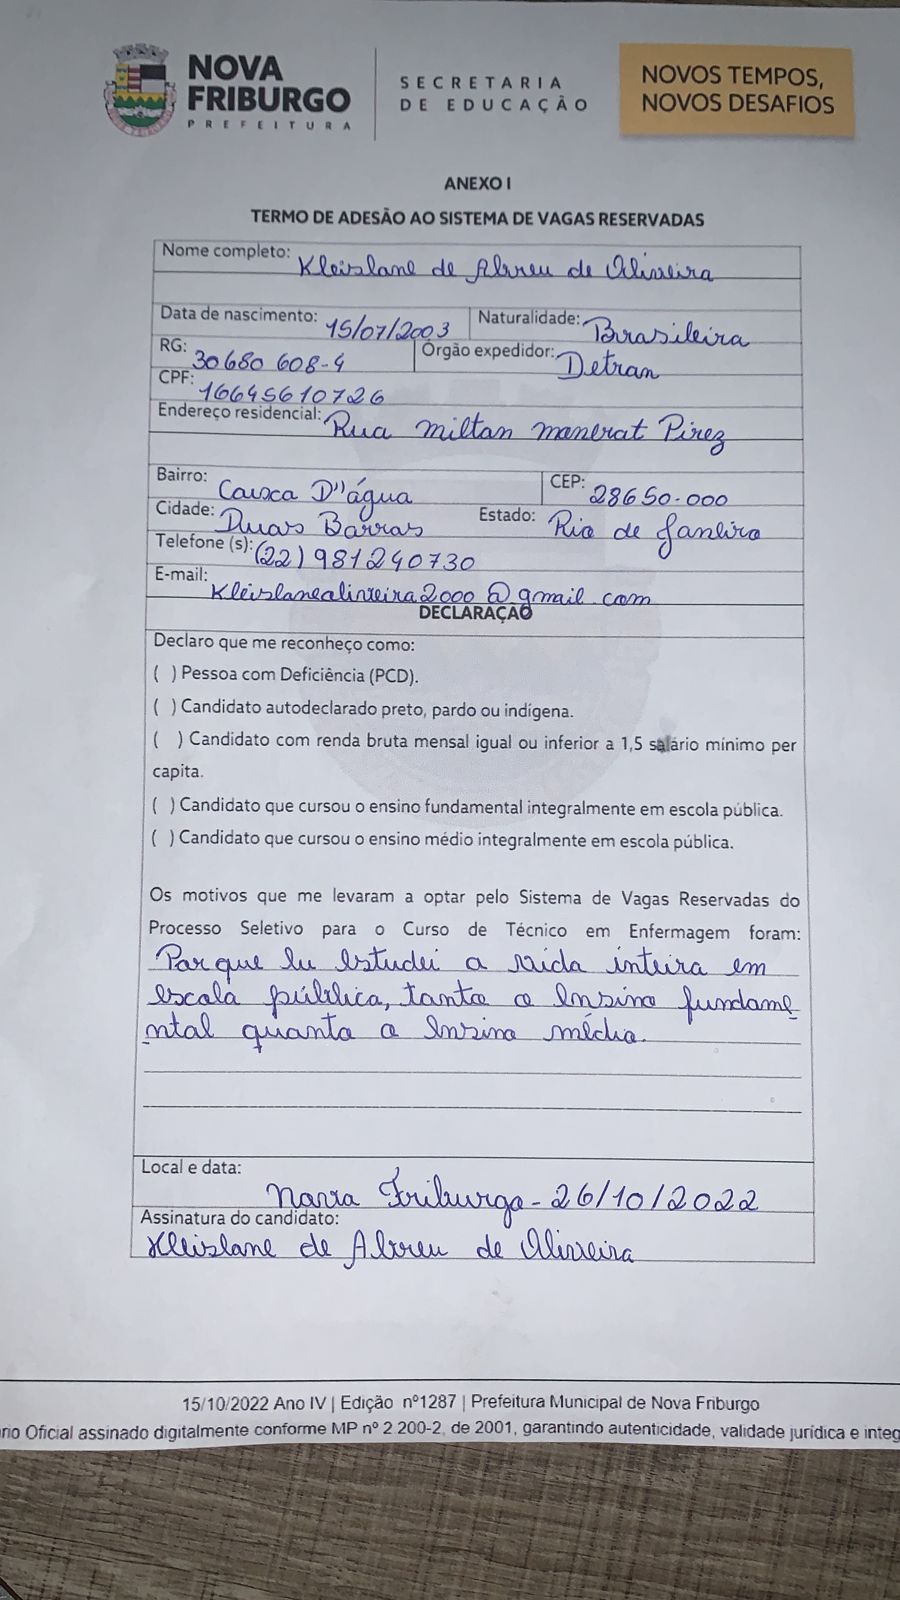 NOVA
FRIBURGO
PREFEITURA
SECRETARIA
DE EDUCAÇÃO
NOVOS TEMPOS,
NOVOS DESAFIOS
ANEXO I
TERMO DE ADESÃO AO SISTEMA DE VAGAS RESERVADAS
Nome completo: Kleislane de Abreu de Oliveira
Data de nascimento: 15/07/2003 Naturalidade: Brasileira
RG: 30680 608-4 Órgão expedidor: Detran
CPF: 16645610726
Endereço residencial: Rua Miltan Manerat Pirez
Bairro: Caixca D''água CEP: 28650-000
Cidade: Duas Barras Estado: Rio de Janeiro
Telefone (s): (22) 981240730
E-mail: Kleislaneoliveira2000@gmail.com
DECLARAÇÃO
Declaro que me reconheço como:
( ) Pessoa com Deficiência (PCD).
( ) Candidato autodeclarado preto, pardo ou indígena.
( ) Candidato com renda bruta mensal igual ou inferior a 1,5 salário mínimo per
capita.
( ) Candidato que cursou o ensino fundamental integralmente em escola pública.
( ) Candidato que cursou o ensino médio integralmente em escola pública.
Os motivos que me levaram a optar pelo Sistema de Vagas Reservadas do
Processo Seletivo para o Curso de Técnico em Enfermagem foram:
Por que eu estudei a vida inteira em
escola pública, tanto o ensino fundame-
-ntal quanto o ensino médio.
Local e data:
Nova Friburgo - 26/10/2022
Assinatura do candidato:
Kleislane de Abreu de Oliveira
15/10/2022 Ano IV | Edição nº1287 | Prefeitura Municipal de Nova Friburgo
rio Oficial assinado digitalmente conforme MP nº 2.200-2, de 2001, garantindo autenticidade, validade jurídica e integ